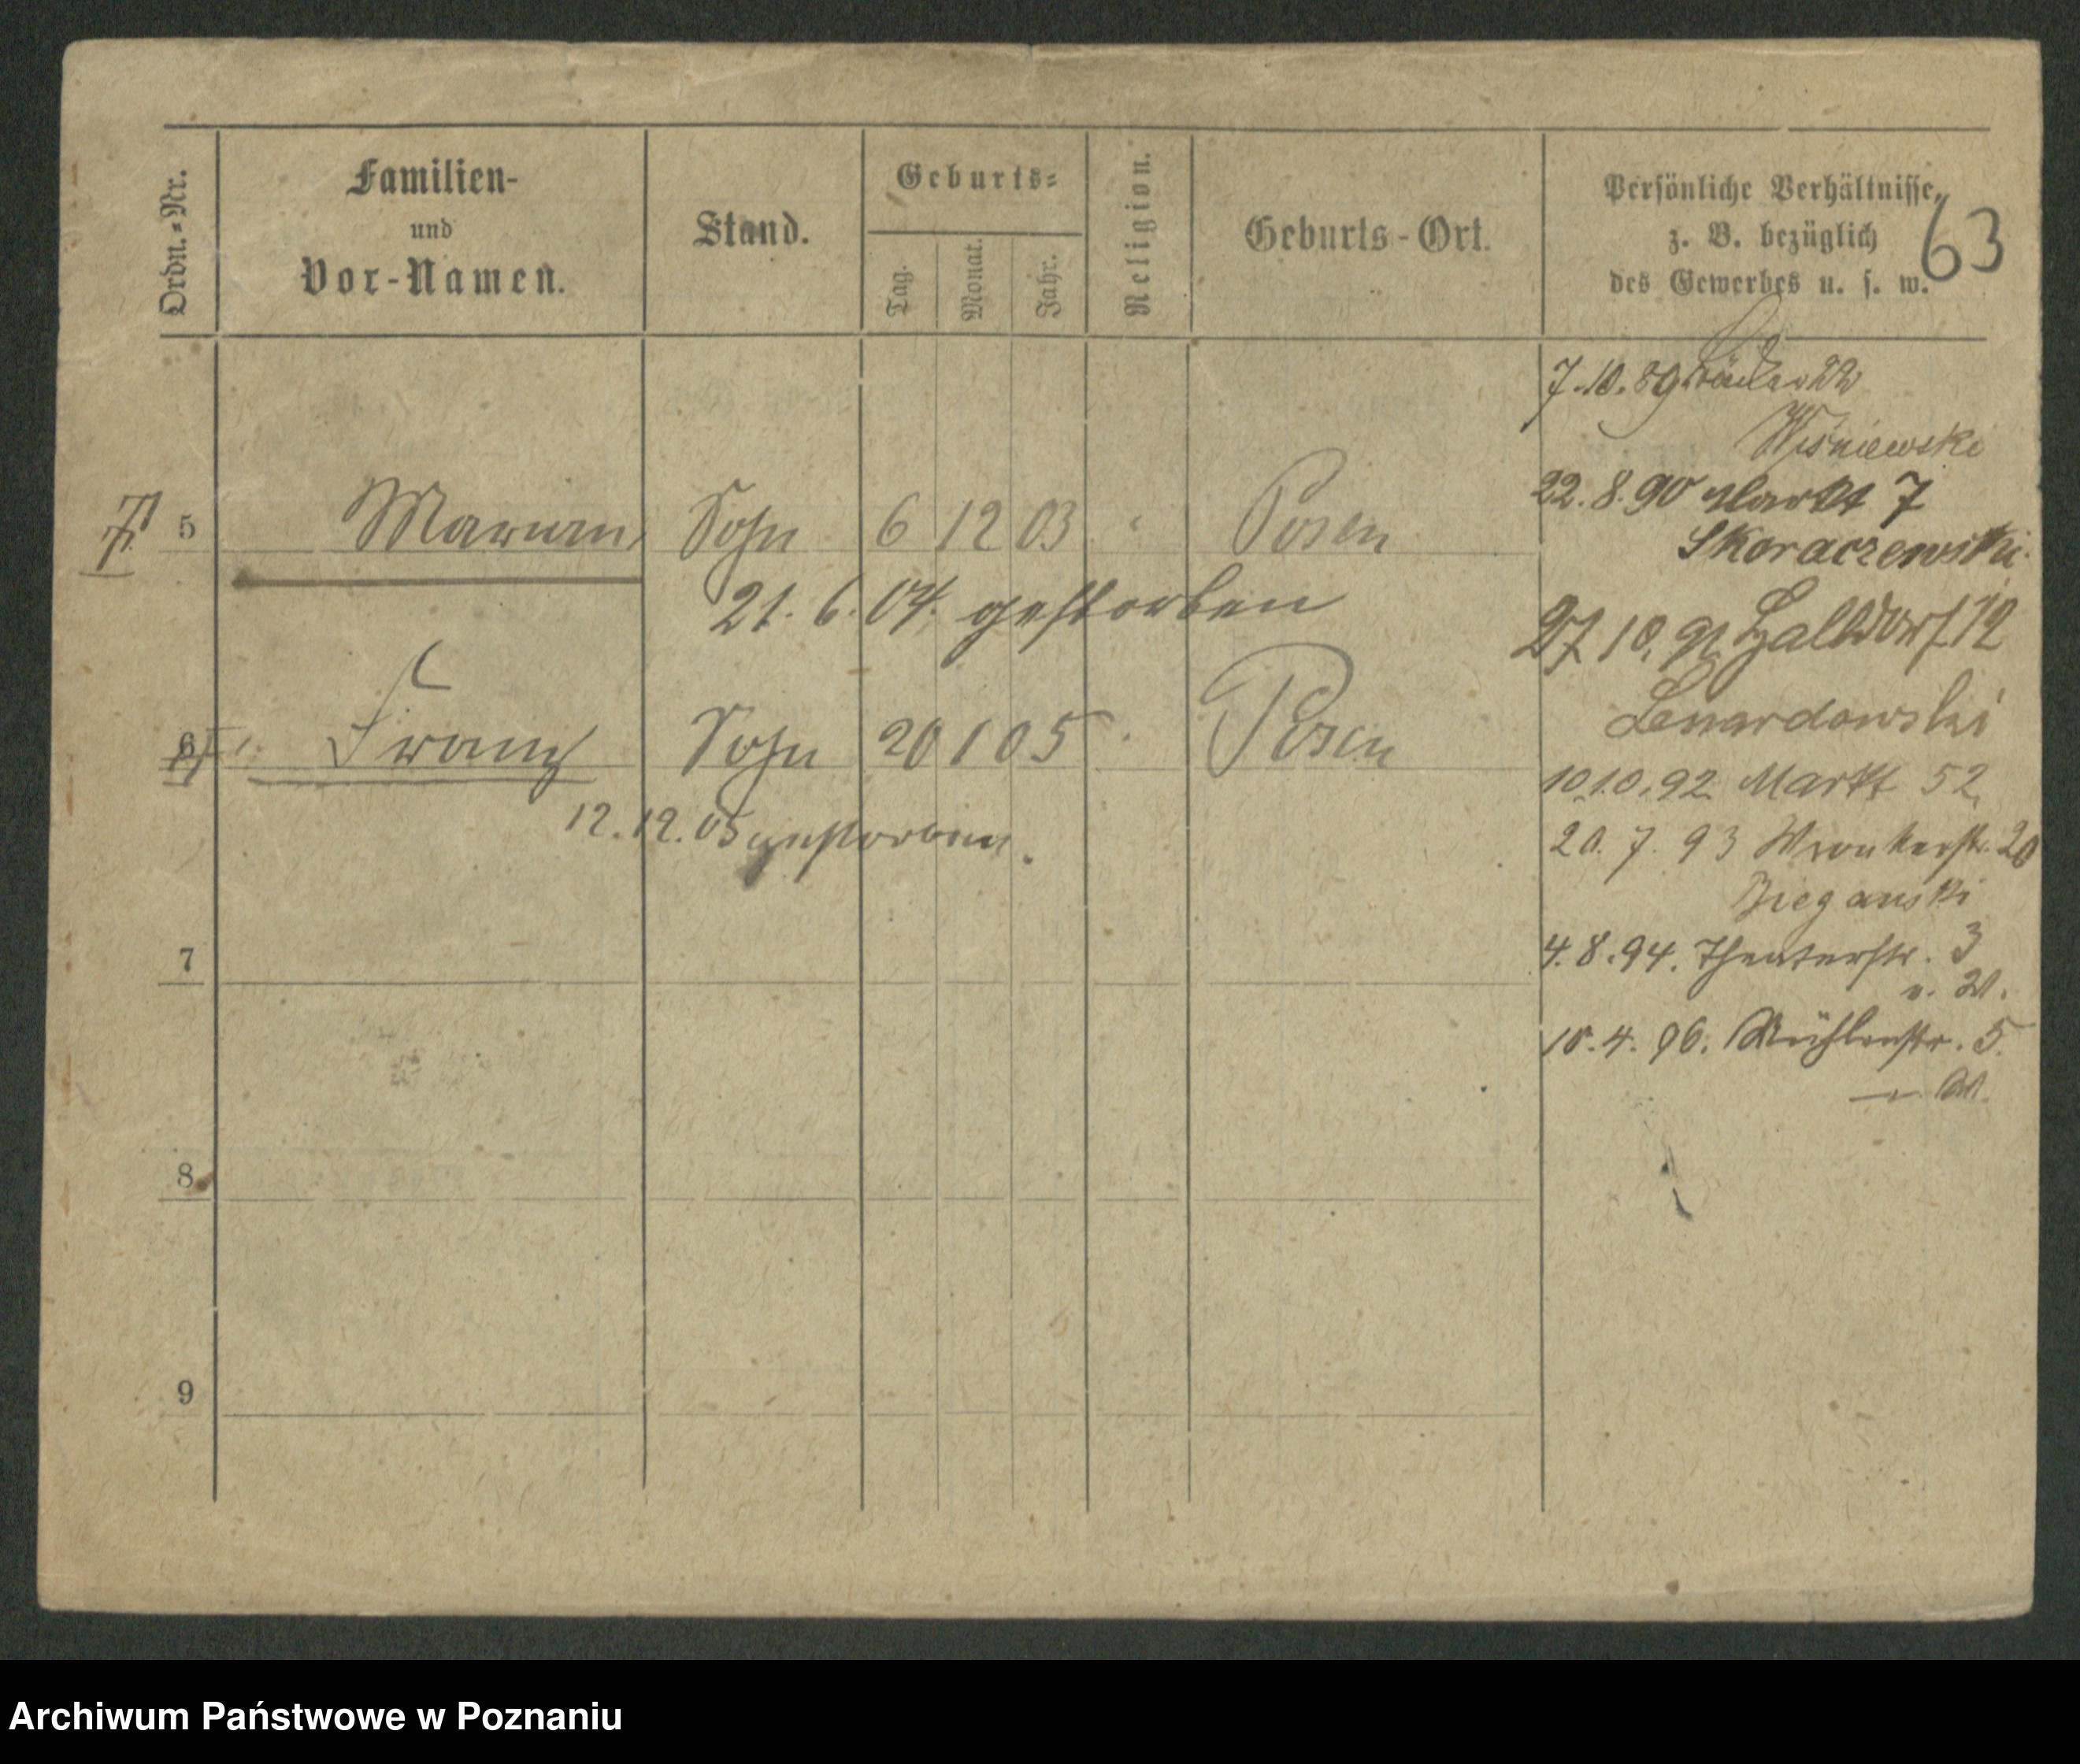 63
Ordn.-Nr.
Familien-
und
Vor-Namen.
Stand.
Geburts-
Tag.
Monat.
Jahr.
Religion.
Geburts-Ort.
Persönliche Verhältnisse,
z. B. bezüglich
des Gewerbes u. s. w.
5 Marian Sohn 6 12 03 Posen
21. 6. 04. gestorben
6 Franz Sohn 20 1 05 Posen
12. 12. 05 gestorben.
7
8
9
7.10.89 22
Wisniewski
22.8.90 Markt 7
Skoraczewski
27 10. 91 Halbdorf 12
Lewandowski
10.10.92 Markt 52
20. 7. 93 Wronkerstr. 20
Bieganski
4.8.94. Theaterstr. 3
v. W.
10.4.96. Mühlenstr. 5.
W.
Archiwum Państwowe w Poznaniu